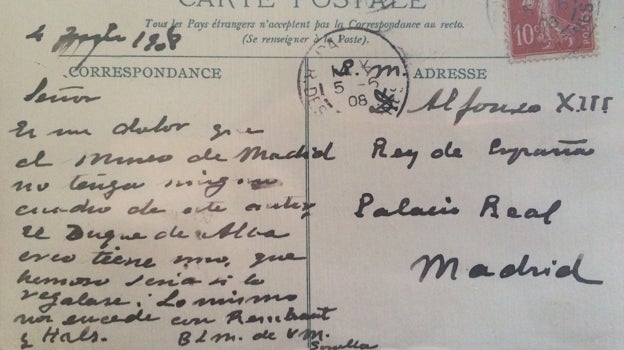 CARTE POSTALE
Tous les Pays étrangers n'acceptent pas la Correspondance au recto.
(Se renseigner à la Poste).
1908
CORRESPONDANCE
Señor
Es un dolor que
el Museo de Madrid
no tenga ningun
cuadro de este autor,
El Duque de Alba
creo tiene uno, que
hermoso seria si lo
regalase; Lo mismo
nos sucede con Rembrant
y Hals.
B L m. de V M.
Sorolla
ADRESSE
S. M.
Alfonso XIII
Rey de España
Palacio Real
Madrid
5 -6
08
10c